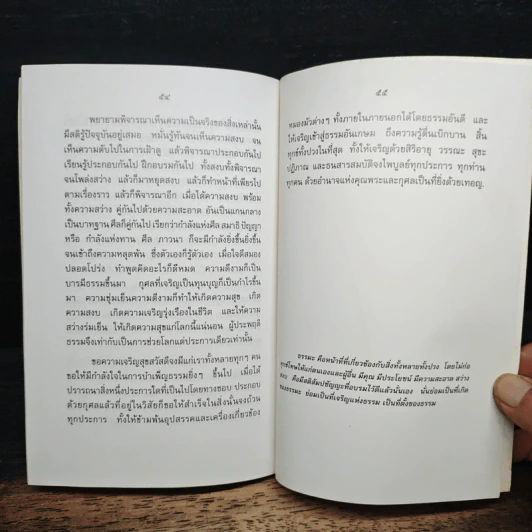 ๕๔
พยายามพิจารณาเห็นความเป็นจริงของสิ่งเหล่านั้น
มีสติรู้ปัจจุบันอยู่เสมอ หมั่นรู้ทันจนเห็นความสงบ จน
เห็นความดับไปในการเฝ้าดู แล้วพิจารณาประกอบกันไป
เรียนรู้ประกอบกันไป ฝึกอบรมกันไป ทั้งสงบทั้งพิจารณา
จนโพล่งสว่าง แล้วก็มาหยุดสงบ แล้วก็ทำหน้าที่เพียรไป
ตามเรื่องราว แล้วก็พิจารณาอีก เมื่อได้ความสงบ พร้อม
ทั้งความสว่าง คู่กันไปด้วยความสะอาด อันเป็นแกนกลาง
เป็นบาทฐาน ศีลก็คู่กันไป เรียกว่ากำลังแห่งศีล สมาธิ ปัญญา
หรือ กำลังแห่งทาน ศีล ภาวนา ก็จะมีกำลังยิ่งขึ้นยิ่งขึ้น
จนเข้าถึงความหลุดพ้น ซึ่งตัวเองก็รู้ตัวเอง เมื่อใจดีสมอง
ปลอดโปร่ง ทำพูดคิดอะไรก็ดีหมด ความดีงามก็เป็น
บารมีธรรมขึ้นมา กุศลที่เป็นทุนบุญก็เป็นกำไรขึ้น
มา ความชุ่มเย็นความดีงามก็ทำให้เกิดความสุข เกิด
ความสงบ เกิดความเจริญรุ่งเรืองในชีวิต และให้ความ
สว่างร่มเย็น ให้เกิดความสุขแก่โลกนี้แน่นอน ผู้ประพฤติ
ธรรมจึงเท่ากับเป็นการช่วยโลกแต่ประการเดียวเท่านั้น
ขอความเจริญสุขสวัสดีจงมีแก่เราทั้งหลายทุกๆ คน
ขอให้มีกำลังใจในการบำเพ็ญธรรมยิ่งๆ ขึ้นไป เมื่อได้
ปรารถนาสิ่งหนึ่งประการใดที่เป็นไปโดยทางชอบ ประกอบ
ด้วยกุศลแล้วที่อยู่ในวิสัยก็ขอให้สำเร็จในสิ่งนั้นจงถ้วน
ทุกประการ ทั้งให้ข้ามพ้นอุปสรรคและเครื่องเกี่ยวข้อง
๕๕
หมองมัวต่างๆ ทั้งภายในภายนอกได้โดยธรรมอันดี และ
ให้เจริญเข้าสู่ธรรมอันเกษม ถึงความรู้ตื่นเบิกบาน สิ้น
ทุกข์ทั้งปวงในที่สุด ทั้งให้เจริญด้วยสิริอายุ วรรณะ สุขะ
ปฏิภาณ และธนสารสมบัติจงไพบูลย์ทุกประการ ทุกท่าน
ทุกคน ด้วยอำนาจแห่งคุณพระและกุศลเป็นที่ยิ่งด้วยเทอญ.
ธรรมะ คือหน้าที่ที่เกี่ยวข้องกับสิ่งทั้งหลายทั้งปวง โดยไม่ก่อ
ทุกข์โทษให้แก่ตนเองและผู้อื่น มีคุณ มีประโยชน์ มีความสะอาด สว่าง
สงบ คือมีสติสัมปชัญญะที่อบรมไว้ดีแล้วนั่นเอง นั่นย่อมเป็นที่เกิด
แห่งธรรมะ ย่อมเป็นที่เจริญแห่งธรรม เป็นที่ตั้งของธรรม